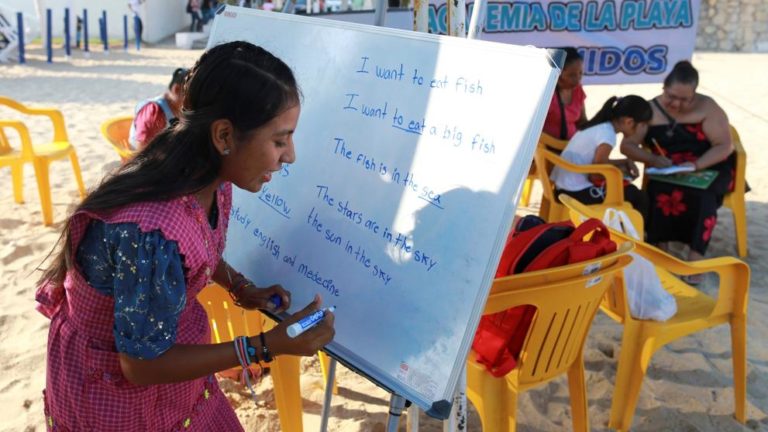 ACADEMIA DE LA PLAYA
I want to eat fish
I want to eat a big fish
The fish is in the sea
Yellow
The stars are in the sky
the sun in the sky
study english and medecine